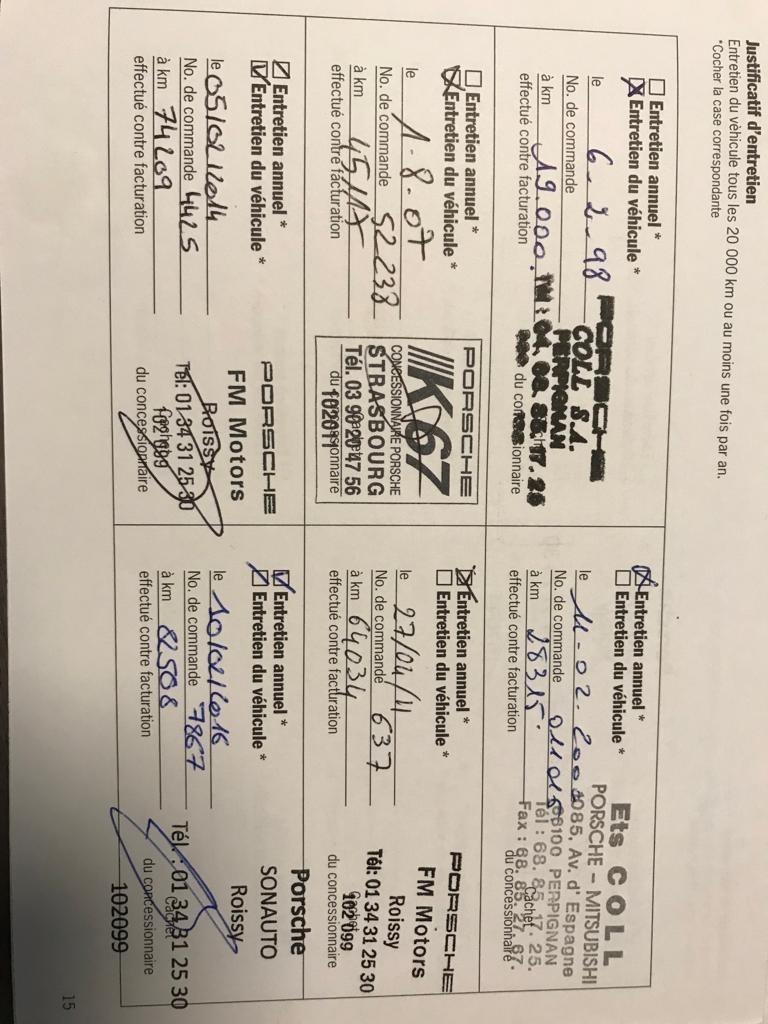 Justificatif d'entretien
Entretien du véhicule tous les 20 000 km ou au moins une fois par an.
*Cocher la case correspondante
Entretien annuel *
Entretien du véhicule *
le 6-2-98
No. de commande
à km 19.000.
effectué contre facturation
PORSCHE
COLL S.A.
PERPIGNAN
du concessionnaire
Entretien annuel *
Entretien du véhicule *
le 11-02-
No. de commande
à km 28315.
effectué contre facturation
Ets COLL
PORSCHE - MITSUBISHI
1085, Av. d'Espagne
66100 PERPIGNAN
Tél : 68. 85. 17. 25.
Cachet
Fax : 68. 85. 27. 67.
du concessionnaire
Entretien annuel *
Entretien du véhicule *
le 1-8-07
No. de commande 52238
à km 45117
effectué contre facturation
PORSCHE
K67
CONCESSIONNAIRE PORSCHE
STRASBOURG
Tél. 03 90 20 47 56
du concessionnaire
102011
Entretien annuel *
Entretien du véhicule *
le 27/04/11
No. de commande 637
à km 64034
effectué contre facturation
PORSCHE
FM Motors
Roissy
Tél: 01 34 31 25 30
Cachet
102 099
du concessionnaire
Entretien annuel *
Entretien du véhicule *
le 05/02/2014
No. de commande 4425
à km 74209
effectué contre facturation
PORSCHE
FM Motors
Roissy
Tél: 01 34 31 25 30
Cachet
102 099
du concessionnaire
Entretien annuel *
Entretien du véhicule *
le 10/02/2016
No. de commande 7867
à km 82508
effectué contre facturation
Porsche
SONAUTO
Roissy
Tél. : 01 34 31 25 30
Cachet
du concessionnaire
102099
15